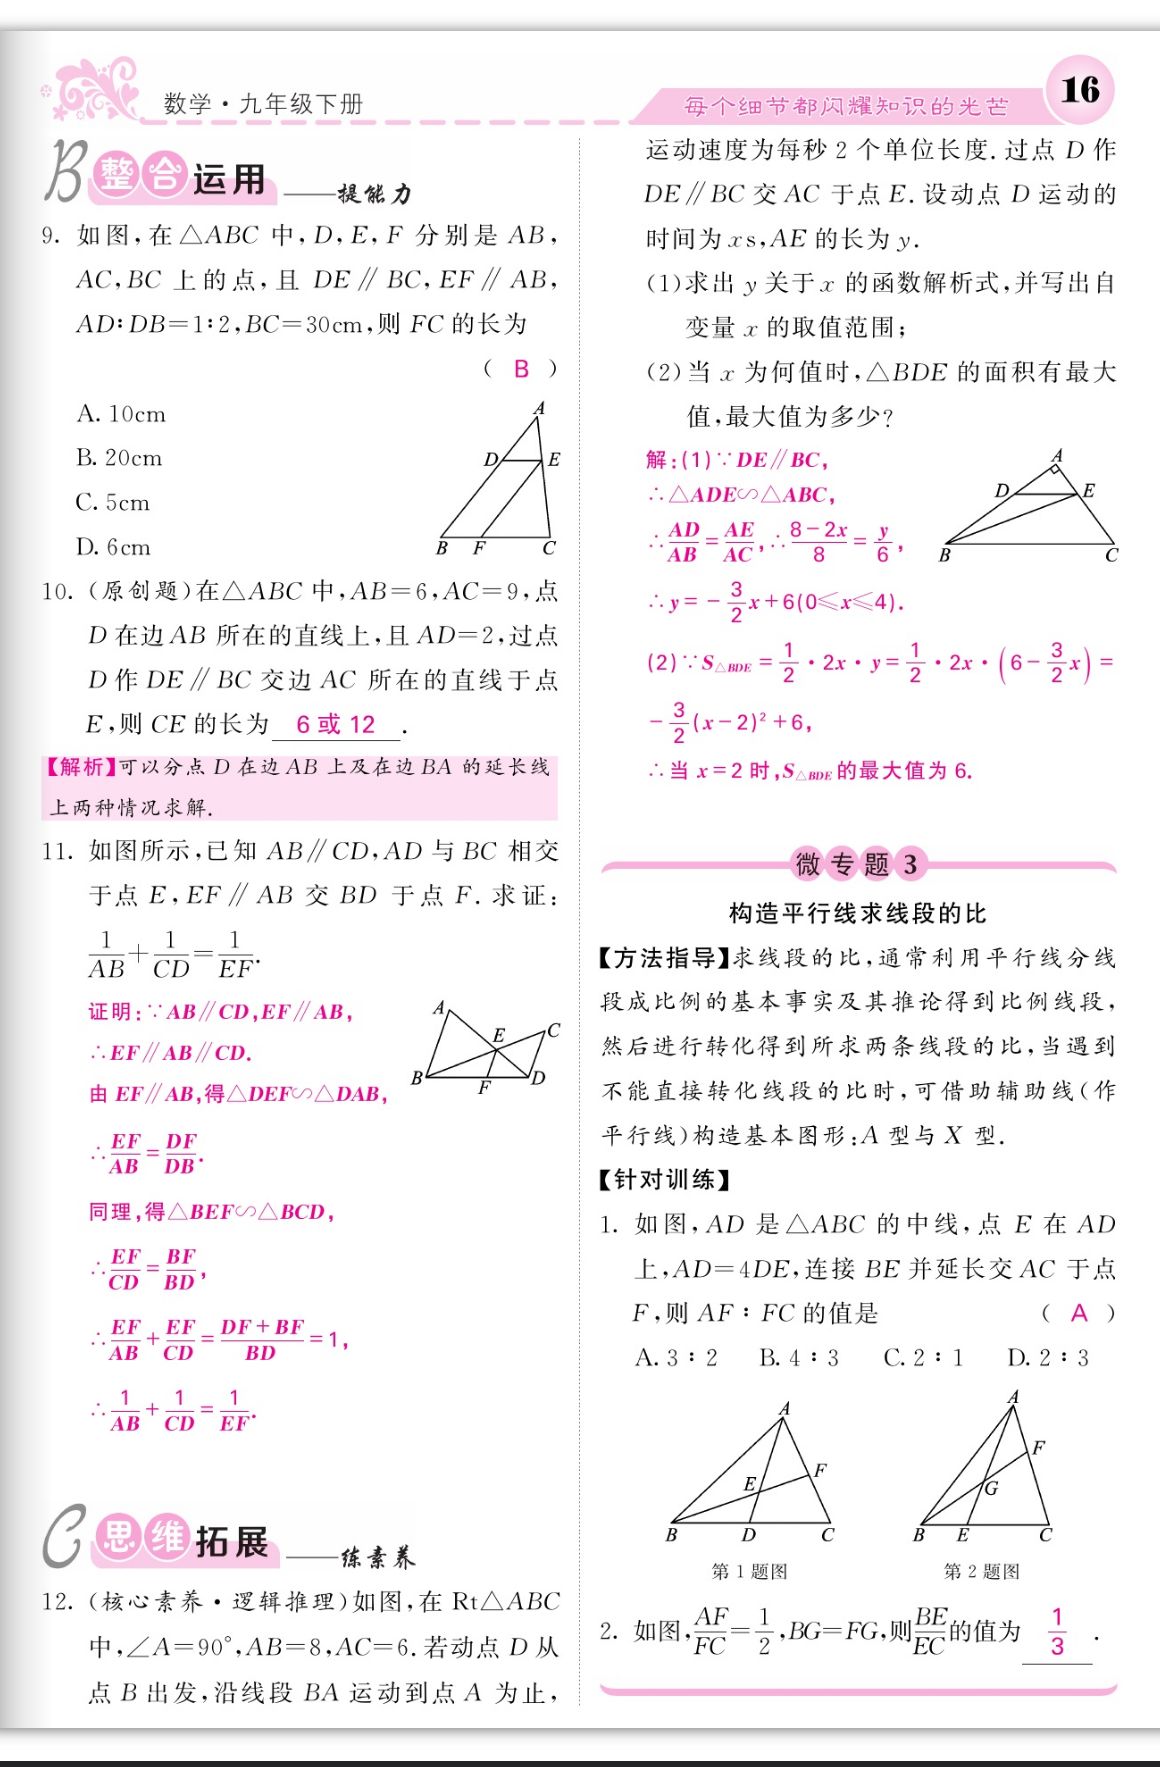 数学·九年级下册
每个细节都闪耀知识的光芒
16
B 整合运用 ——提能力
9. 如图,在△ABC 中,D,E,F 分别是 AB,
AC,BC 上的点,且 DE∥BC,EF∥AB,
AD∶DB=1∶2,BC=30cm,则 FC 的长为
( B )
A. 10cm
B. 20cm
C. 5cm
D. 6cm
A
D
E
B
F
C
10. (原创题)在△ABC 中,AB=6,AC=9,点
D 在边AB 所在的直线上,且 AD=2,过点
D 作 DE∥BC 交边 AC 所在的直线于点
E,则 CE 的长为 6 或 12 .
【解析】可以分点 D 在边 AB 上及在边 BA 的延长线
上两种情况求解.
11. 如图所示,已知 AB∥CD,AD 与 BC 相交
于点 E,EF∥AB 交 BD 于点 F. 求证:
1/AB+1/CD=1/EF.
证明:∵AB∥CD,EF∥AB,
∴EF∥AB∥CD.
由 EF∥AB,得△DEF∽△DAB,
∴EF/AB=DF/DB.
同理,得△BEF∽△BCD,
∴EF/CD=BF/BD,
∴EF/AB+EF/CD=DF+BF/BD=1,
∴1/AB+1/CD=1/EF.
A
E
C
B
F
D
C 思维拓展 ——练素养
12. (核心素养·逻辑推理)如图,在 Rt△ABC
中,∠A=90°,AB=8,AC=6. 若动点 D 从
点 B 出发,沿线段 BA 运动到点 A 为止,
运动速度为每秒 2 个单位长度. 过点 D 作
DE∥BC 交 AC 于点 E. 设动点 D 运动的
时间为 x s,AE 的长为 y.
(1)求出 y 关于 x 的函数解析式,并写出自
变量 x 的取值范围;
(2)当 x 为何值时,△BDE 的面积有最大
值,最大值为多少?
解:(1)∵DE∥BC,
∴△ADE∽△ABC,
∴AD/AB=AE/AC,∴8-2x/8=y/6,
∴y=-3/2x+6(0≤x≤4).
(2)∵S△BDE=1/2·2x·y=1/2·2x·(6-3/2x)=
-3/2(x-2)²+6,
∴当 x=2 时,S△BDE的最大值为 6.
A
D
E
B
C
微专题 3
构造平行线求线段的比
【方法指导】求线段的比,通常利用平行线分线
段成比例的基本事实及其推论得到比例线段,
然后进行转化得到所求两条线段的比,当遇到
不能直接转化线段的比时,可借助辅助线(作
平行线)构造基本图形:A 型与 X 型.
【针对训练】
1. 如图,AD 是△ABC 的中线,点 E 在 AD
上,AD=4DE,连接 BE 并延长交 AC 于点
F,则 AF∶FC 的值是 ( A )
A. 3∶2 B. 4∶3 C. 2∶1 D. 2∶3
A
E
F
B
D
C
第 1 题图
A
F
G
B
E
C
第 2 题图
2. 如图,AF/FC=1/2,BG=FG,则BE/EC的值为 1/3 .